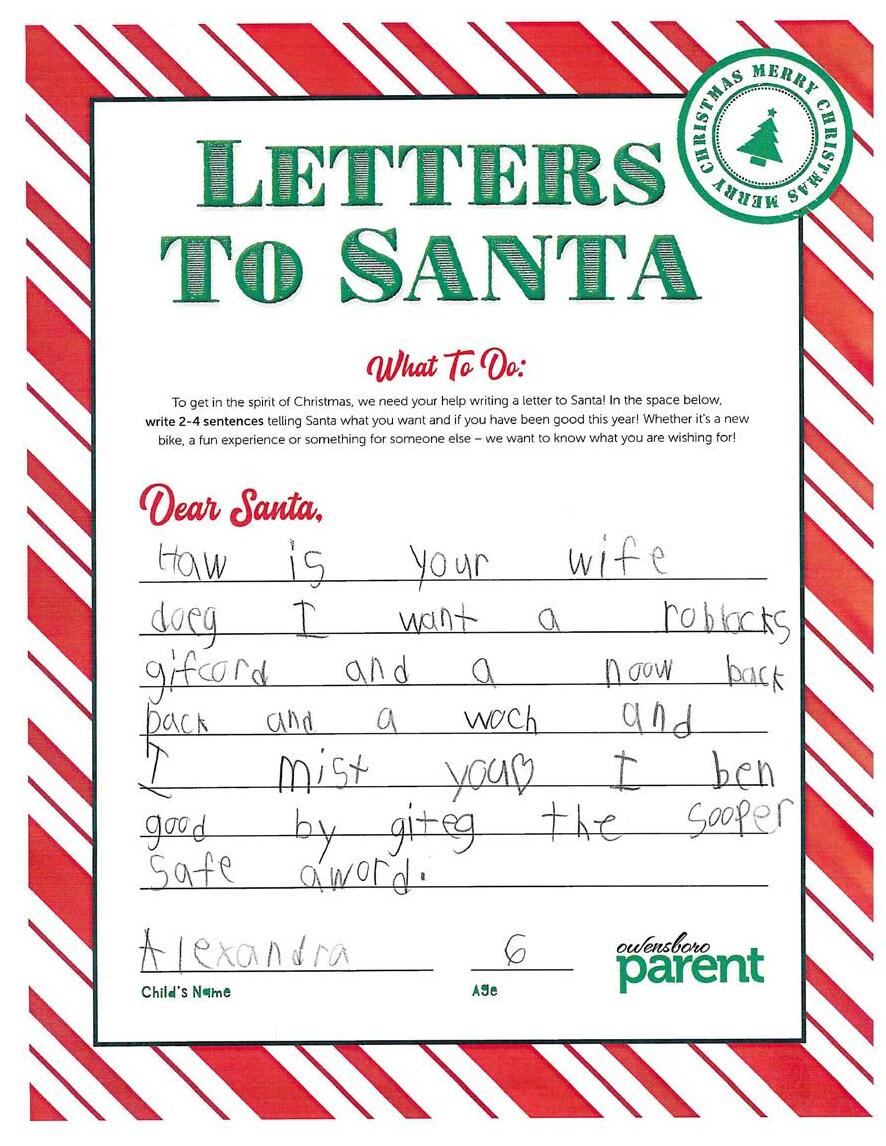 LETTERS
TO SANTA
MERRY CHRISTMAS MERRY CHRISTMAS
What To Do:
To get in the spirit of Christmas, we need your help writing a letter to Santa! In the space below,
write 2-4 sentences telling Santa what you want and if you have been good this year! Whether it's a new
bike, a fun experience or something for someone else – we want to know what you are wishing for!
Dear Santa,
Haw is your wife
doeg I want a roblocks
gifcord and a noow back
pack and a woch and
I mist you♡ I ben
good by giteg the sooper
safe aword.
Alexandra 6
Child's Name Age
owensboro
parent